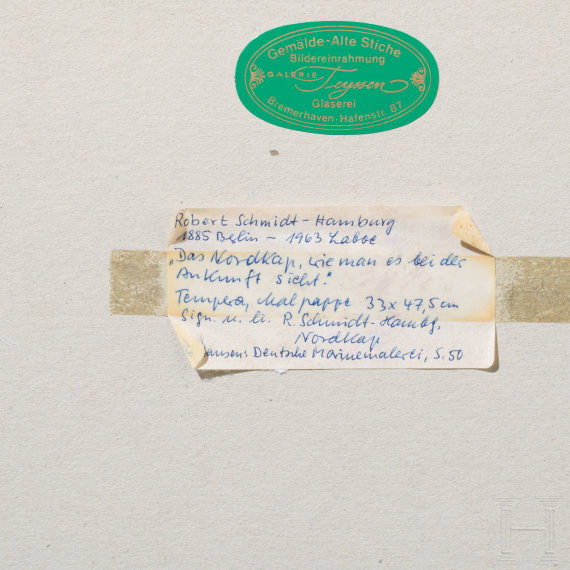 Gemälde-Alte Stiche
Bildereinrahmung
GALERIE Teyssen
Glaserei
Bremerhaven · Hafenstr. 87
Robert Schmidt - Hamburg
1885 Berlin - 1963 Laboe
„Das Nordkap, wie man es bei der
Ankunft sieht."
Tempera, Malpappe 33 x 47,5 cm
Sign. u. li. R. Schmidt-Hambg.
Nordkap
Jansen: Deutsche Marinemalerei, S. 50
H